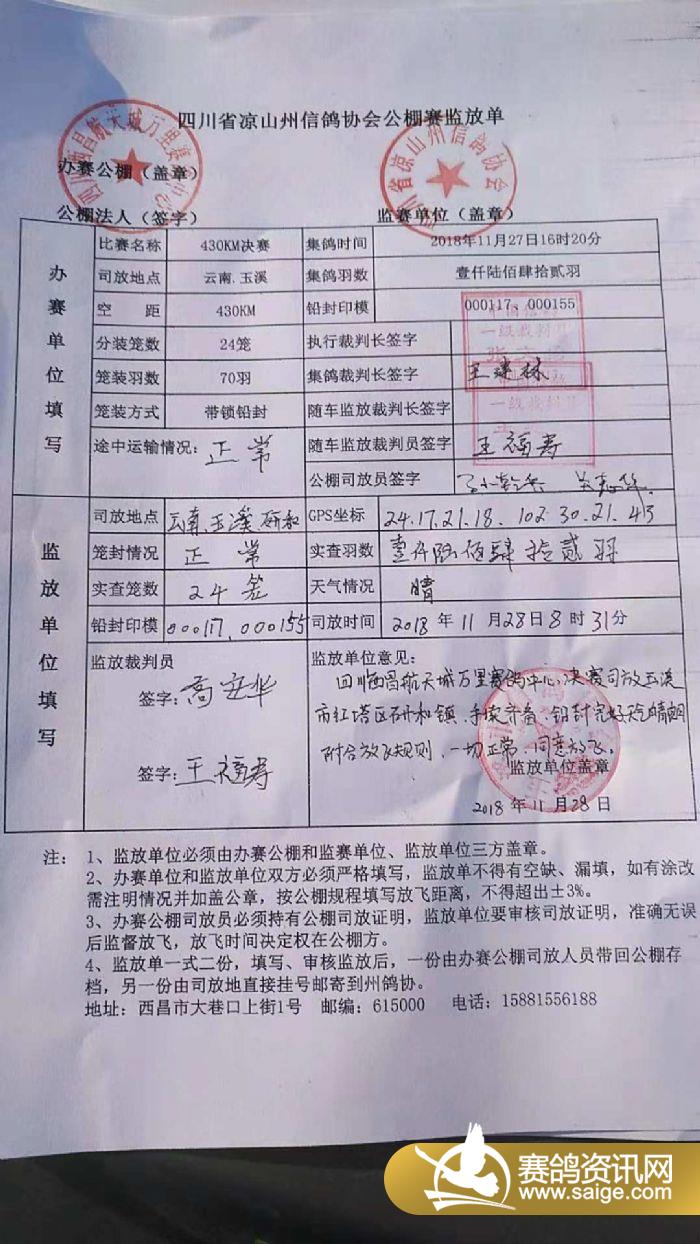 四川省凉山州信鸽协会公棚赛监放单
四川西昌航天城万里赛鸽中心
四川省凉山州信鸽协会
办赛公棚（盖章）
公棚法人（签字） 监赛单位（盖章）
办赛单位填写
比赛名称 430KM决赛 集鸽时间 2018年11月27日16时20分
司放地点 云南.玉溪 集鸽羽数 壹仟陆佰肆拾贰羽
空 距 430KM 铅封印模 000117、000155
分装笼数 24笼 执行裁判长签字
一级裁判员
笼装羽数 70羽 集鸽裁判长签字 王建林
笼装方式 带锁铅封 随车监放裁判长签字
一级裁判员
途中运输情况: 正常 随车监放裁判员签字 王福寿
公棚司放员签字
监放单位填写
司放地点 云南玉溪研和 GPS坐标 24.17.21.18. 102.30.21.43
笼封情况 正常 实查羽数 壹仟陆佰肆拾贰羽
实查笼数 24笼 天气情况 晴
铅封印模 000117.000155 司放时间 2018年11月28日8时31分
监放裁判员 监放单位意见:
签字: 高安华
四川西昌航天城万里赛鸽中心决赛司放玉溪
市红塔区研和镇.手续齐备.铅封完好天晴朗
附合放飞规则.一切正常.同意放飞.
签字: 王福寿
监放单位盖章
2018年11月28日
注: 1、监放单位必须由办赛公棚和监赛单位、监放单位三方盖章。
2、办赛单位和监放单位双方必须严格填写，监放单不得有空缺、漏填，如有涂改
需注明情况并加盖公章，按公棚规程填写放飞距离，不得超出±3%。
3、办赛公棚司放员必须持有公棚司放证明，监放单位要审核司放证明，准确无误
后监督放飞，放飞时间决定权在公棚方。
4、监放单一式二份，填写、审核监放后，一份由办赛公棚司放人员带回公棚存
档，另一份由司放地直接挂号邮寄到州鸽协。
地址: 西昌市大巷口上街1号 邮编: 615000 电话: 15881556188
赛鸽资讯网
www.saige.com